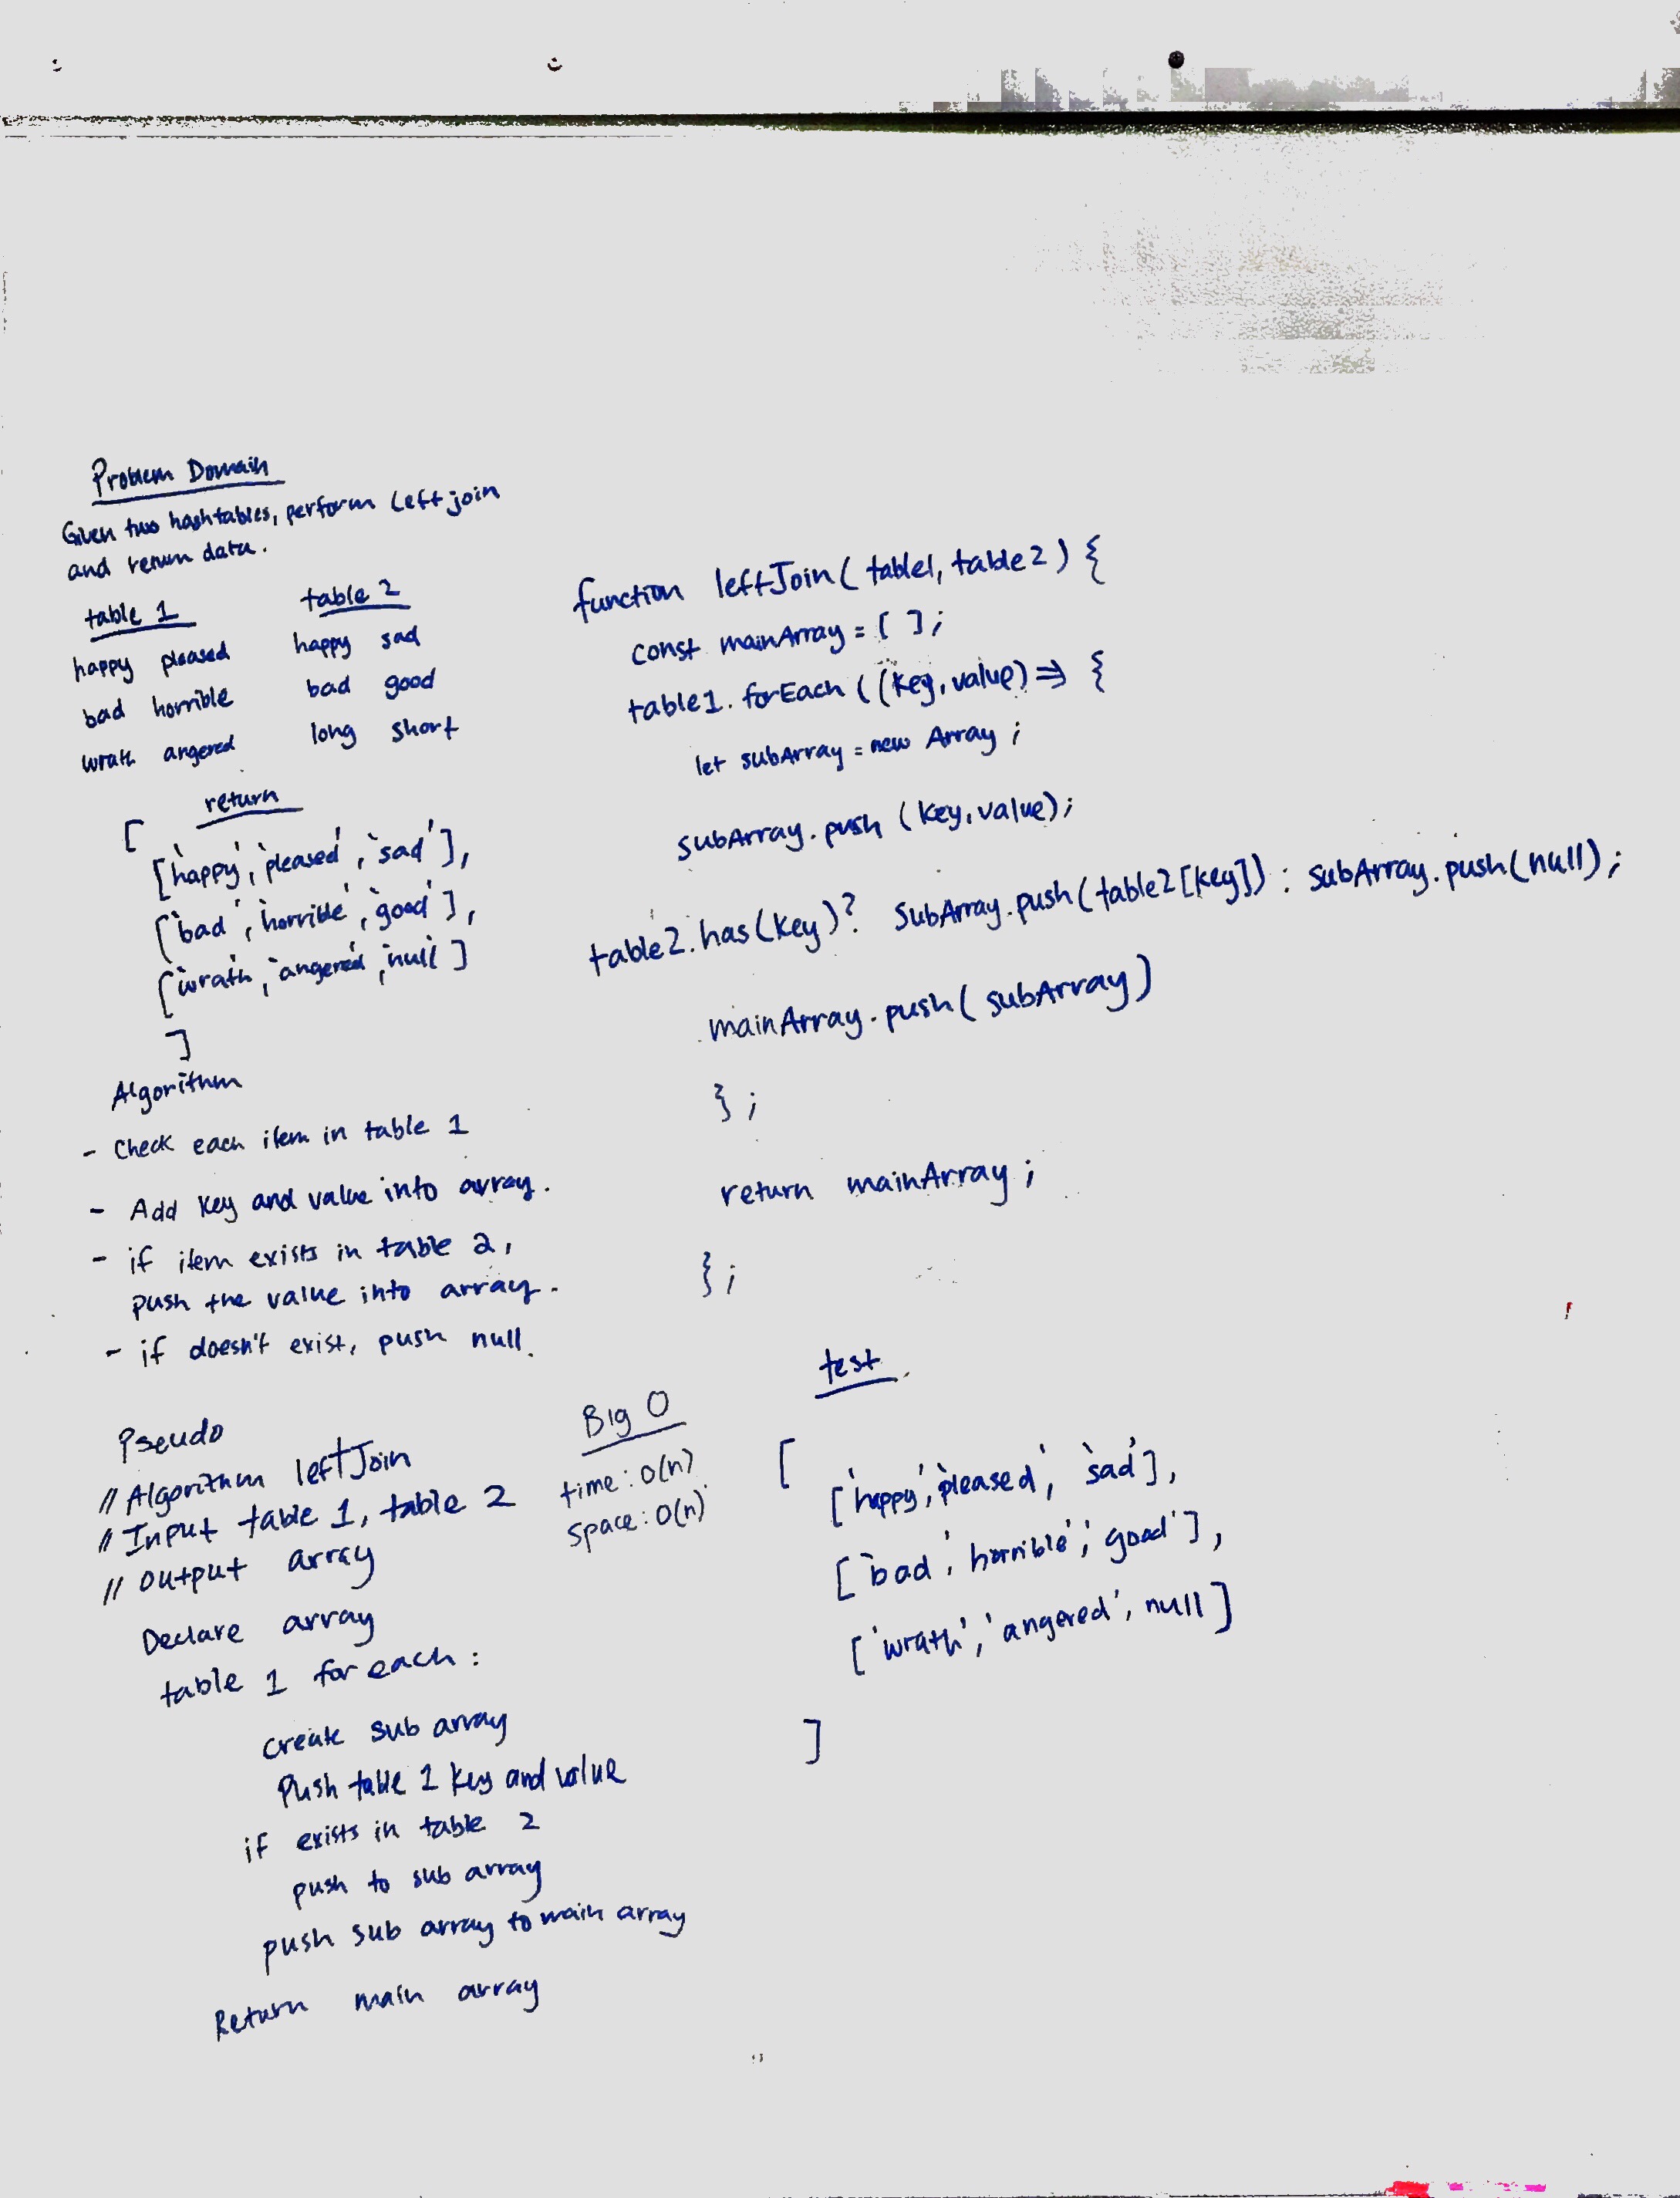 Problem Domain
Given two hashtables, perform left join
and return data.
table 1
happy pleased
bad horrible
wrath angered
table 2
happy sad
bad good
long short
return
[
['happy', 'pleased', 'sad'],
['bad', 'horrible', 'good'],
['wrath', 'angered', 'null']
]
Algorithm
- Check each item in table 1
- Add key and value into array.
- if item exists in table 2,
push the value into array.
- if doesn't exist, push null.
Pseudo
// Algorithm leftJoin
// Input table 1, table 2
// output array
Declare array
table 1 for each:
create sub array
Push table 1 key and value
if exists in table 2
push to sub array
push sub array to main array
Return main array
Big O
time: O(n)
space: O(n)
function leftJoin(table1, table2) {
const mainArray = [ ];
table1.forEach((key, value) => {
let subArray = new Array;
subArray.push(key, value);
table2.has(key)? subArray.push(table2[key]) : subArray.push(null);
mainArray.push(subArray)
};
return mainArray;
};
test
[
['happy', 'pleased', 'sad'],
['bad', 'horrible', 'good'],
['wrath', 'angered', null]
]